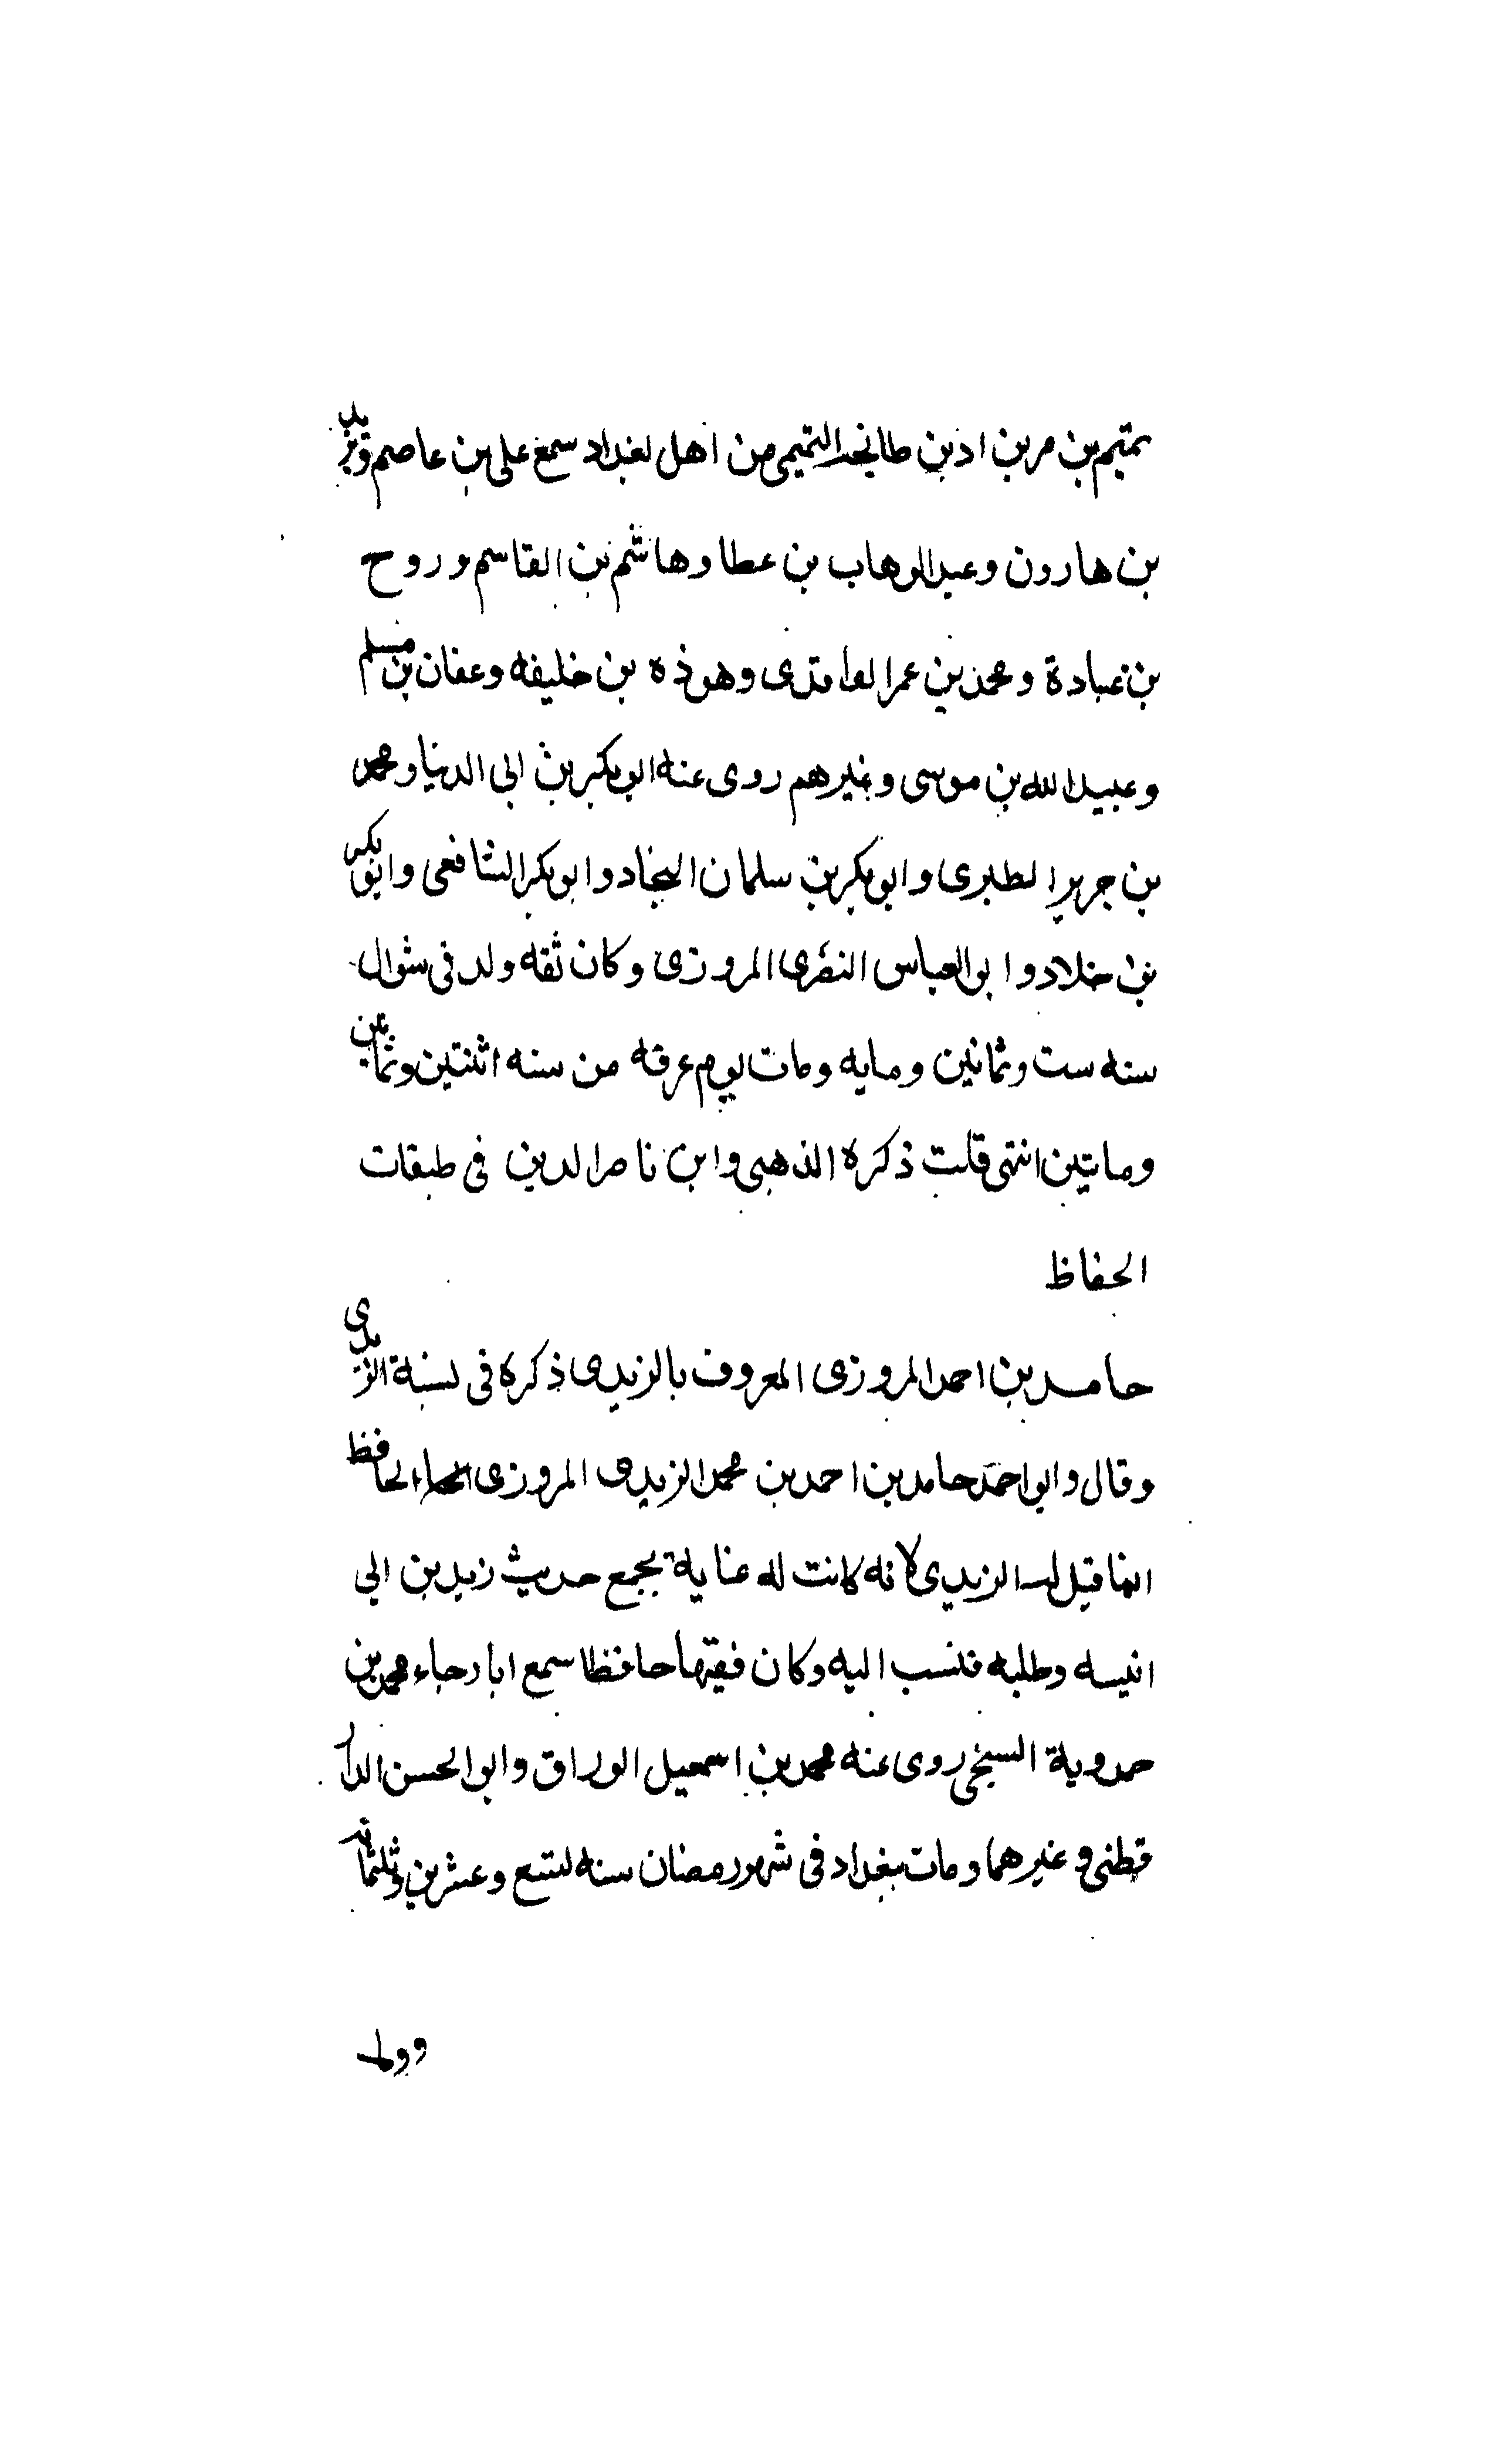 تميم بن مر بن اد بن طانجه التميمي من اهل بغداد سمع علي بن عاصم ويزيد
بن هارون وعبد الوهاب بن عطا وهاشم بن القاسم وروح
بن عبادة ومحمد بن عمر الواقدى وهوذه بن خليفه وعفان بن مسلم
وعبيد الله بن موسى وغيرهم روى عنه ابو بكر بن ابى الدنيا ومحمد
بن جرير الطبرى وابو بكر بن سلمان النجاد وابو بكر الشافعى وابو بكر
بن خلاد وابو العباس النضرى المروزى وكان ثقه ولد فى شوال
سنه ست وثمانين ومايه ومات يوم عرفه من سنه اثنتين وثمانين
ومايتين انتهى قلت ذكره الذهبى وابن ناصر الدين فى طبقات
الحفاظ
حامد بن احمد المروزى المعروف بالزيدى ذكره فى نسبة الزيدى
وقال وابو احمد حامد بن احمد بن محمد الزيدى المروزى الحافظ
انما قيل له الزيدى لانه كانت له عناية بجمع حديث زيد بن ابى
انيسه وطلبه فنسب اليه وكان فقيها حافظا سمع ابا رجاء محمد بن
حمدوية السنجى روى عنه محمد بن اسمعيل الوراق وابو الحسن الدار
قطنى وغيرهما ومات ببغداد فى شهر رمضان سنه تسع وعشرين وثلثمائه